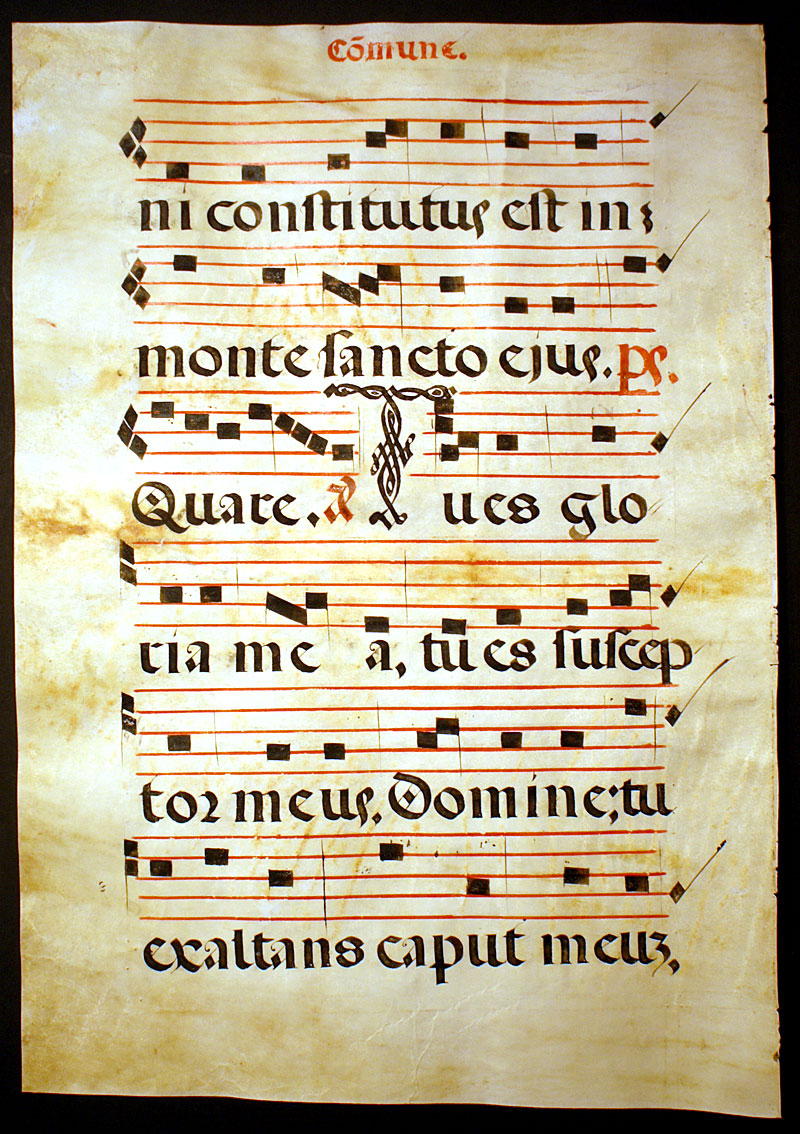 Cõmune.
ni constitutus est in
monte sancto ejus. ps.
Quare. a Tu es glo
ria me a, tu es suscep
tor meus, Domine; tu
exaltans caput meuz,